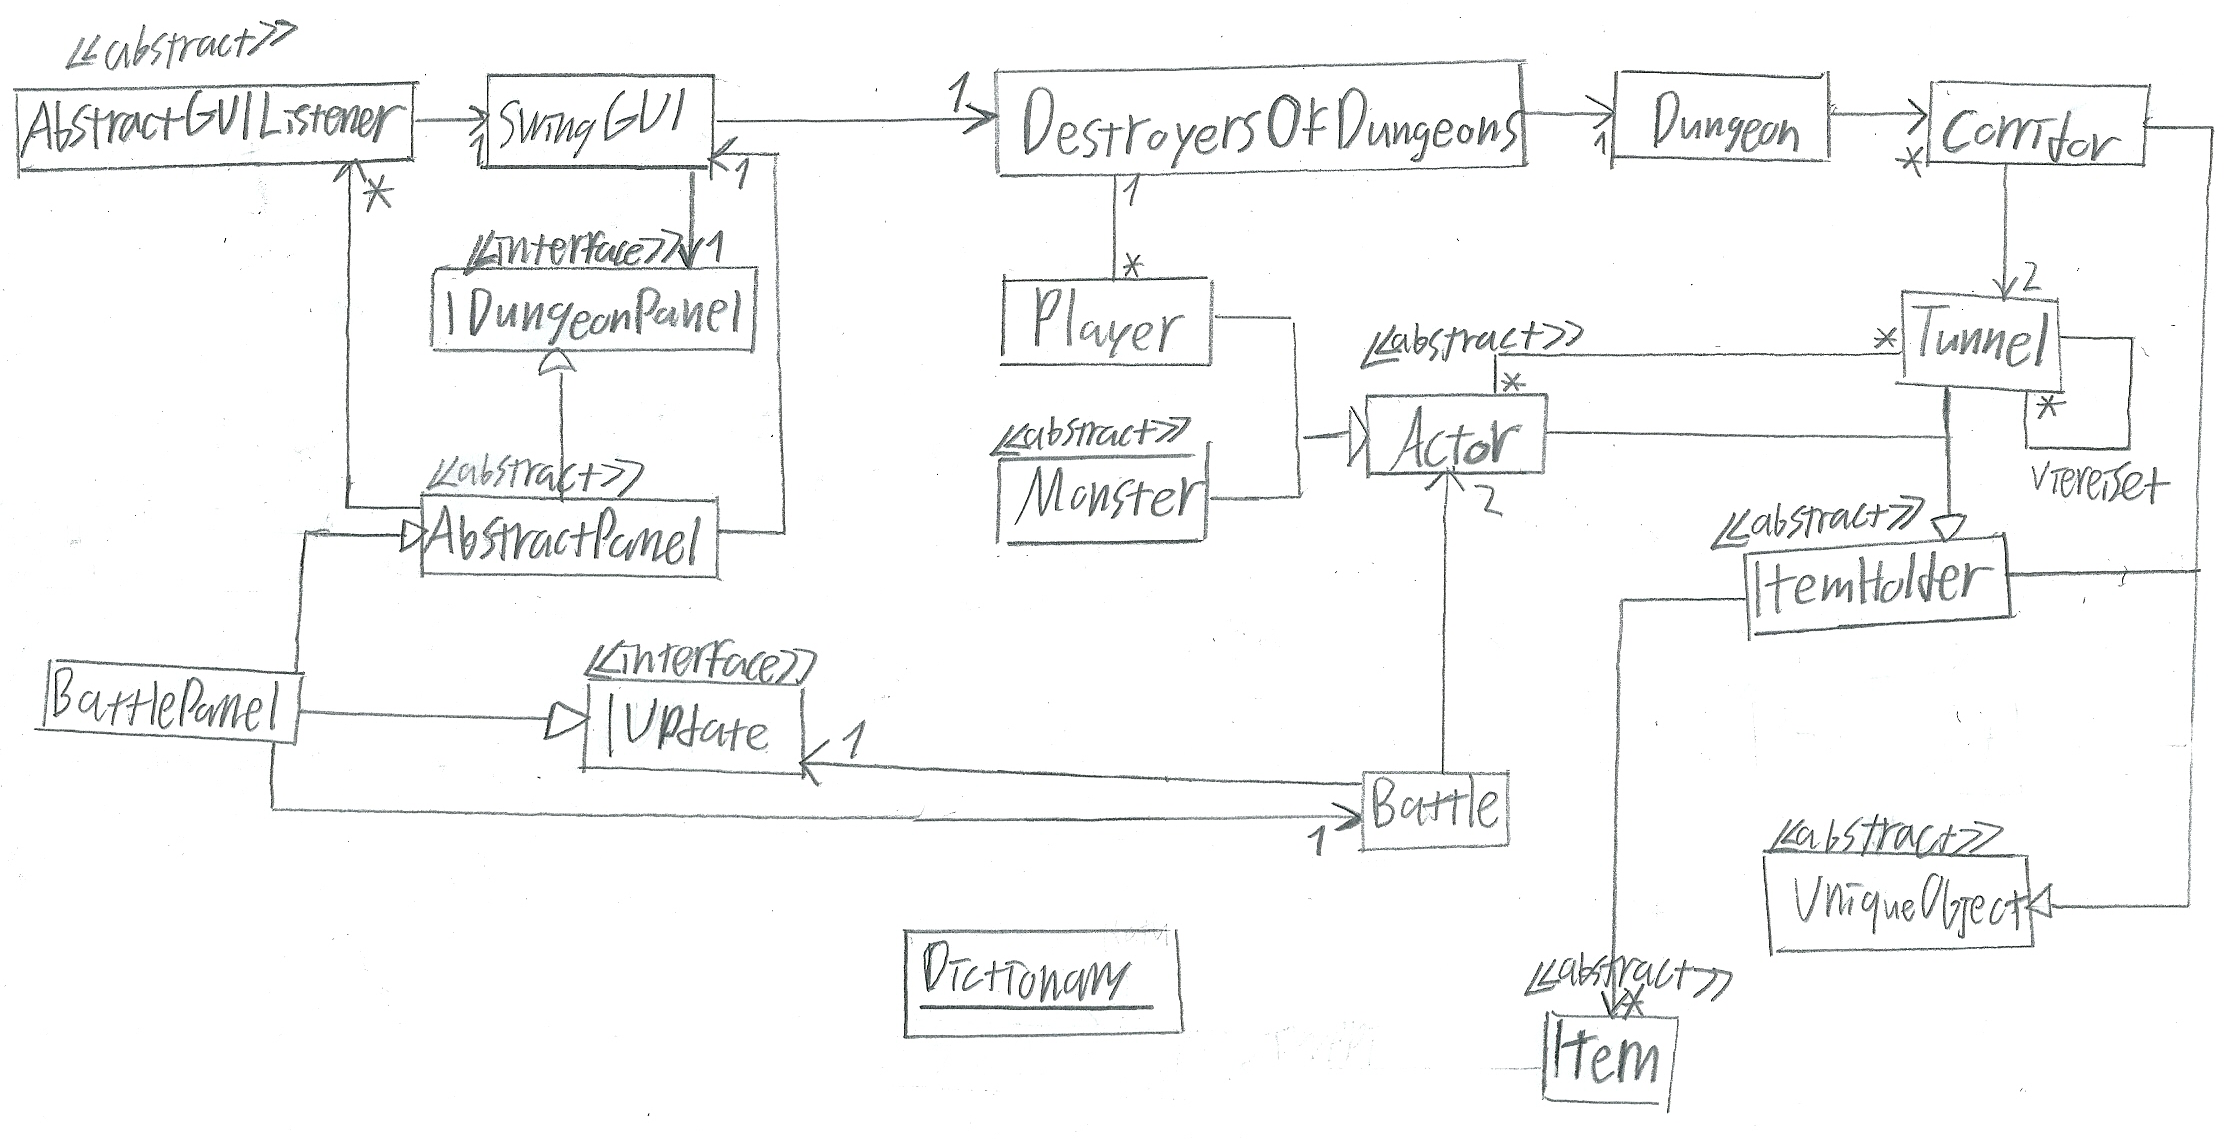 <<abstract>>
AbstractGUIListener
1
SwingGUI
1
1
DestroyersOfDungeons
1
Dungeon
*
Corridor
*
<<interface>>
1
IDungeonPanel
1
*
Player
2
Tunnel
*
viereiset
<<abstract>>
*
*
Actor
2
<<abstract>>
Monster
<<abstract>>
AbstractPanel
<<abstract>>
ItemHolder
BattlePanel
<<interface>>
IUpdate
1
1
Battle
<<abstract>>
UniqueObject
Dictionary
<<abstract>>
*
Item